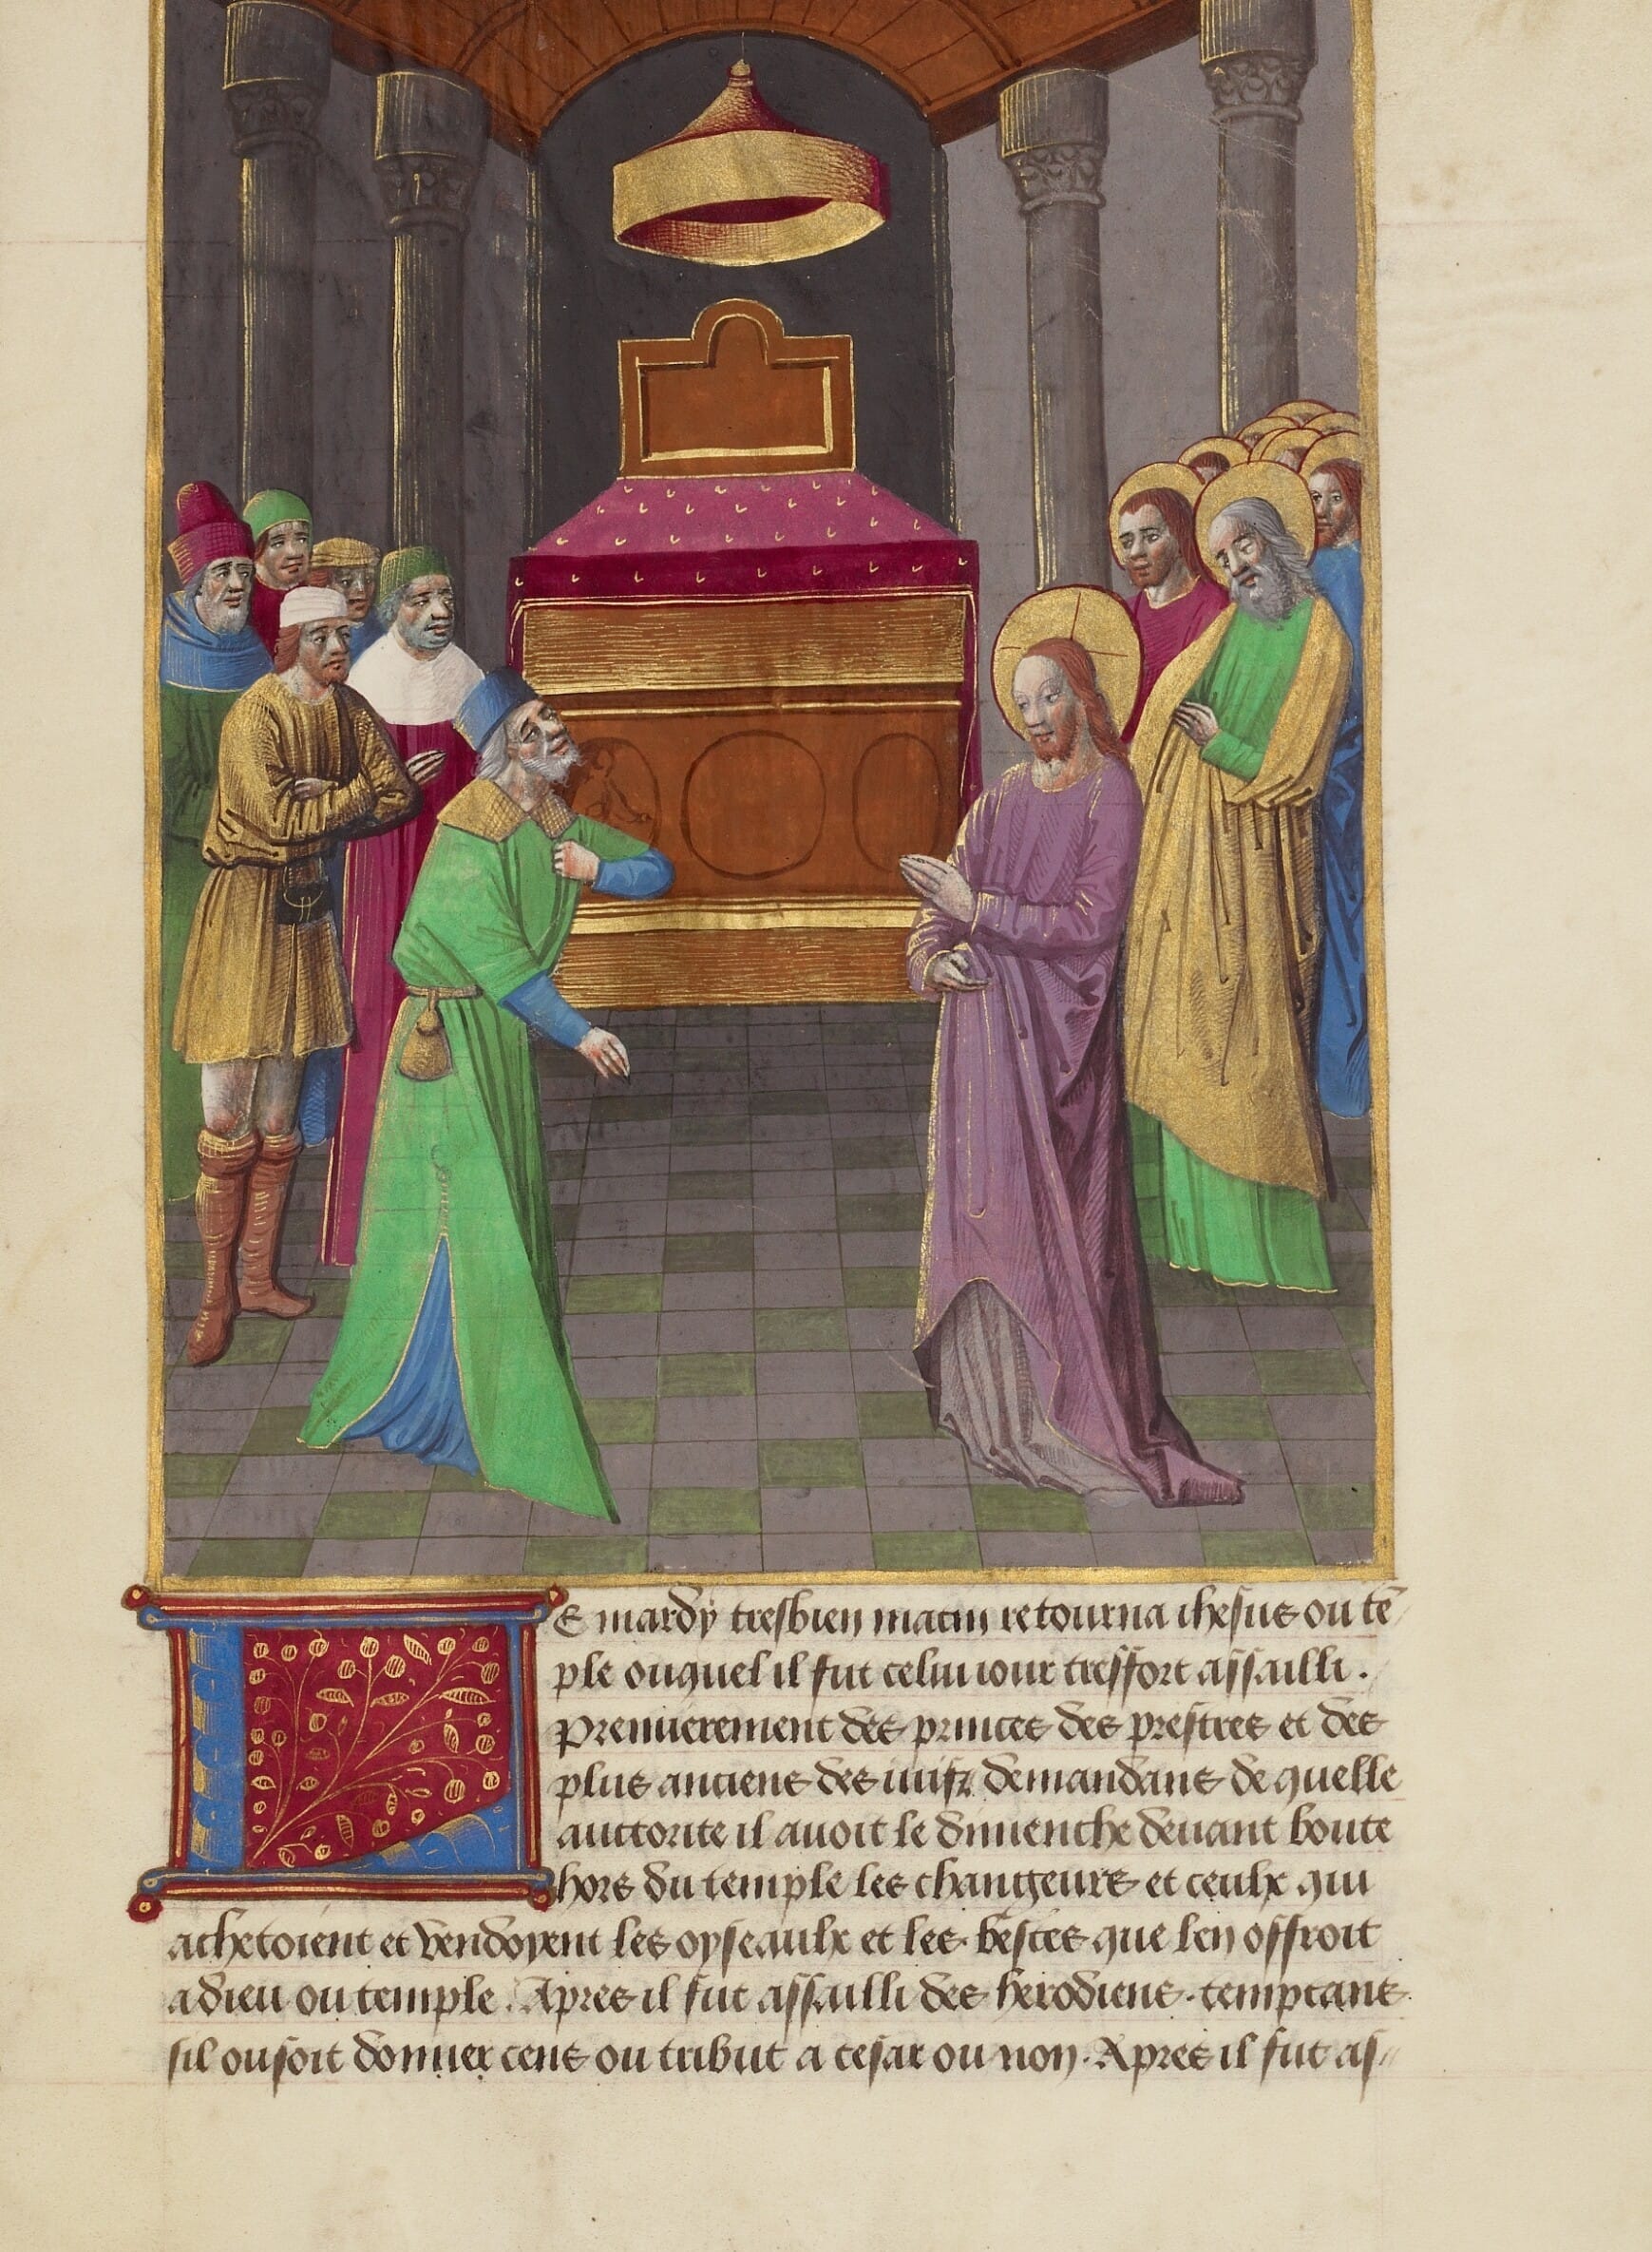 Le mardy tresbien matin retourna ihesus ou tē
ple ouquel il fut celui iour tresfort assailli.
Premierement des princes des prestres et des
plus anciens des iuifz demandans de quelle
auctorite il auoit le dimenche deuant boute
hors du temple les changeurs et ceulx qui
achetoient et vendoyent les oyseaulx et les bestes que len offroit
a dieu ou temple. Apres il fut assailli des herodiens. temptans
sil ousoit donner cens ou tribut a cesar ou non. Apres il fut as//